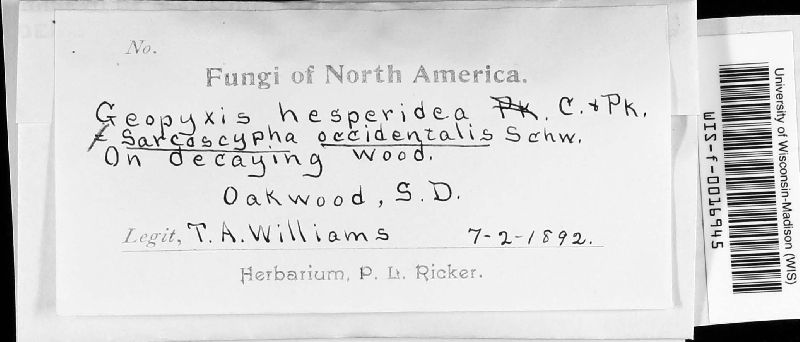 No.
Fungi of North America.
Geopyxis hesperidea PK. C. & PK.
Sarcoscypha occidentalis Schw.
On decaying wood.
Oakwood, S.D.
Legit, T. A. Williams 7-2-1892.
Herbarium, P. L. Ricker.
University of Wisconsin-Madison (WIS)
WIS-f-0016945